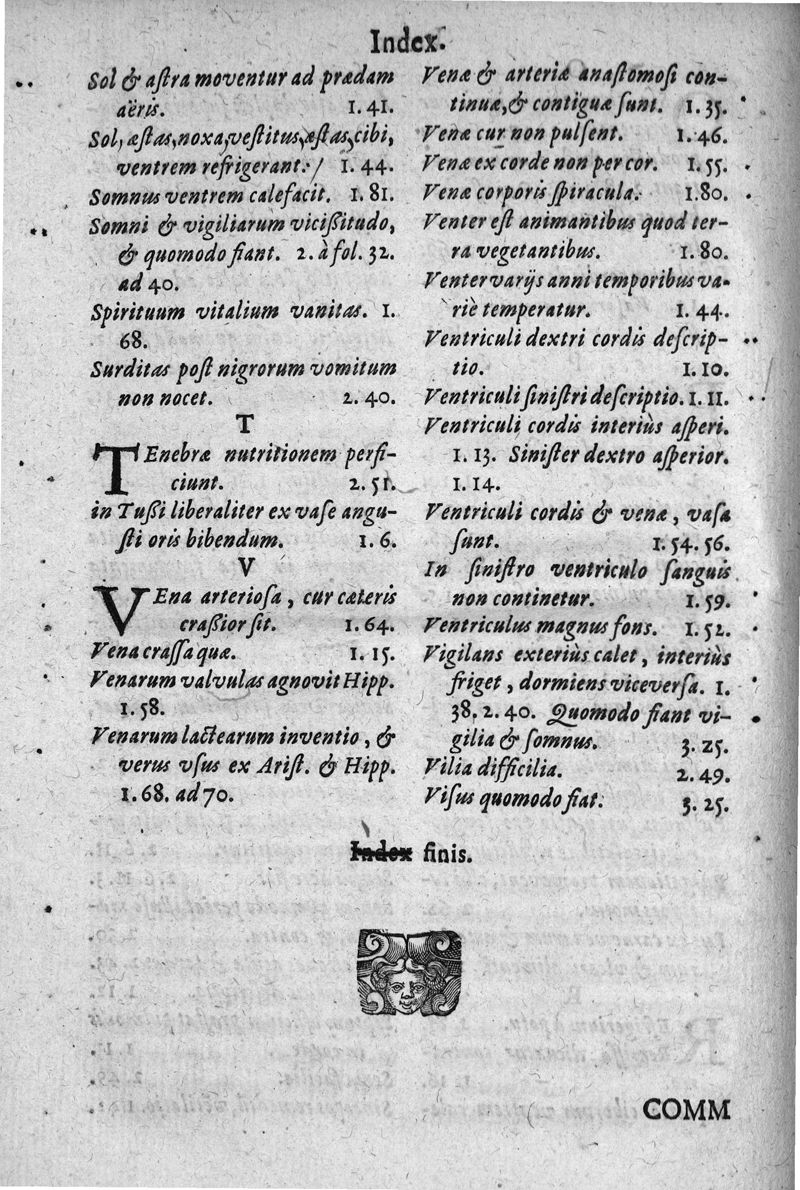 Index.
Sol & astra moventur ad prædam
aëris. 1. 41.
Sol, æstas, noxa, vestitus, æstas, cibi,
ventrem refrigerant. / 1. 44.
Somnus ventrem calefacit. 1. 81.
Somni & vigiliarum vicißitudo,
& quomodo fiant. 2. à fol. 32.
ad 40.
Spirituum vitalium vanitas. 1.
68.
Surditas post nigrorum vomitum
non nocet. 2. 40.
T
TEnebræ nutritionem perfi-
ciunt. 2. 51.
in Tußi liberaliter ex vase angu-
sti oris bibendum. 1. 6.
V
VEna arteriosa, cur cæteris
craßior sit. 1. 64.
Vena crassa quæ. 1. 15.
Venarum valvulas agnovit Hipp.
1. 58.
Venarum lactearum inventio, &
verus vsus ex Arist. & Hipp.
1. 68. ad 70.
Venæ & arteriæ anastomosi con-
tinuæ, & contiguæ sunt. 1. 35.
Venæ cur non pulsent. 1. 46.
Venæ ex corde non per cor. 1. 55.
Venæ corporis spiracula. 1. 80.
Venter est animantibus quod ter-
ra vegetantibus. 1. 80.
Venter varijs anni temporibus va-
riè temperatur. 1. 44.
Ventriculi dextri cordis descrip-
tio. 1. 10.
Ventriculi sinistri descriptio. 1. 11.
Ventriculi cordis interiùs asperi.
1. 13. Sinister dextro asperior.
1. 14.
Ventriculi cordis & venæ, vasa
sunt. 1. 54. 56.
In sinistro ventriculo sanguis
non continetur. 1. 59.
Ventriculus magnus fons. 1. 52.
Vigilans exteriùs calet, interiùs
friget, dormiens viceversa. 1.
38. 2. 40. Quomodo fiant vi-
gilia & somnus. 3. 25.
Vilia difficilia. 2. 49.
Visus quomodo fiat. 3. 25.
Index finis.
COMM